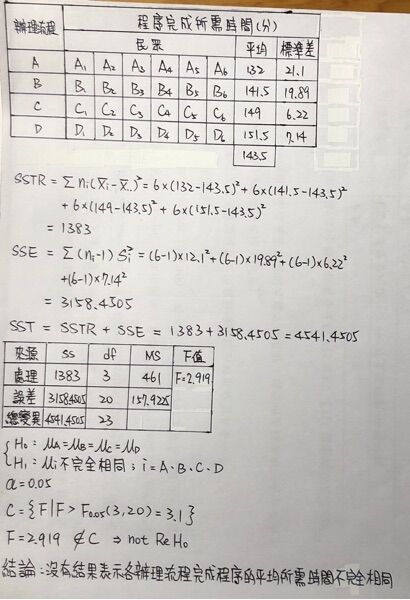 辦理流程 程序完成所需時間(分)
民眾 平均 標準差
A A₁ A₂ A₃ A₄ A₅ A₆ 132 21.1
B B₁ B₂ B₃ B₄ B₅ B₆ 141.5 19.89
C C₁ C₂ C₃ C₄ C₅ C₆ 149 6.22
D D₁ D₂ D₃ D₄ D₅ D₆ 151.5 7.14
143.5
SSTR = Σ nᵢ(x̄ᵢ-x̄..)² = 6×(132-143.5)² + 6×(141.5-143.5)²
+ 6×(149-143.5)² + 6×(151.5-143.5)²
= 1383
SSE = Σ (nᵢ-1) Sᵢ² = (6-1)×12.1² + (6-1)×19.89² + (6-1)×6.22²
+(6-1)×7.14²
= 3158.4505
SST = SSTR + SSE = 1383+3158.4505=4541.4505
來源 SS df MS F值
處理 1383 3 461 F=2.919
誤差 3158.4505 20 157.9225
總變異 4541.4505 23
{ H₀ : μA=μB=μC=μD
H₁ : μi不完全相同 ; i=A、B、C、D
α=0.05
C={F|F> F0.05(3,20)=3.1}
F=2.919 ∉C ⇒ not Re H₀
結論:沒有結果表示各辦理流程完成程序的平均所需時間不完全相同